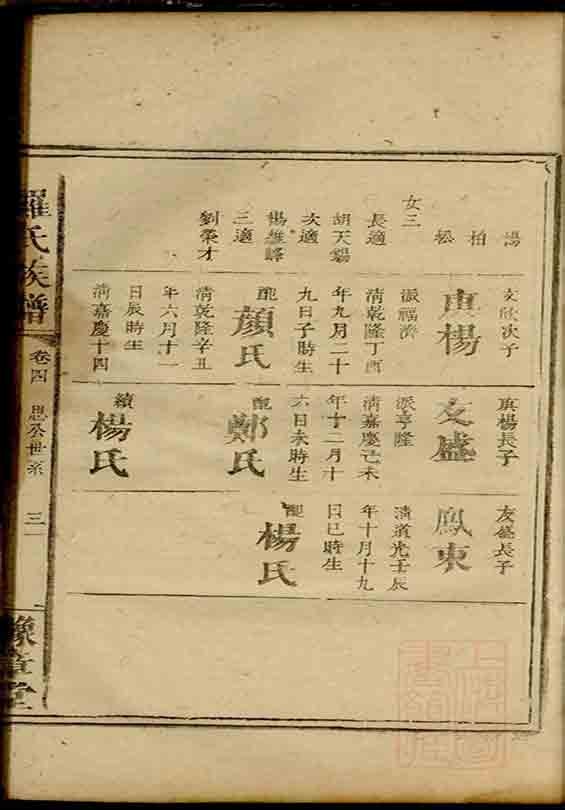 楊
柏
松
女三
長適
胡天錫
次適
楊維峰
三適
劉秉才
文欣次子
真楊
派福濟
清乾隆丁酉
年九月二十
九日子時生
配
顏氏
清乾隆辛丑
年六月十一
日辰時生
清嘉慶十四
真楊長子
友盛
派亨隆
清嘉慶己未
年十二月十
六日未時生
配
鄭氏
續
楊氏
友盛長子
鳳東
清道光壬辰
年十月十九
日巳時生
配
楊氏
羅氏族譜
卷四
思公世系
三一
豫章堂